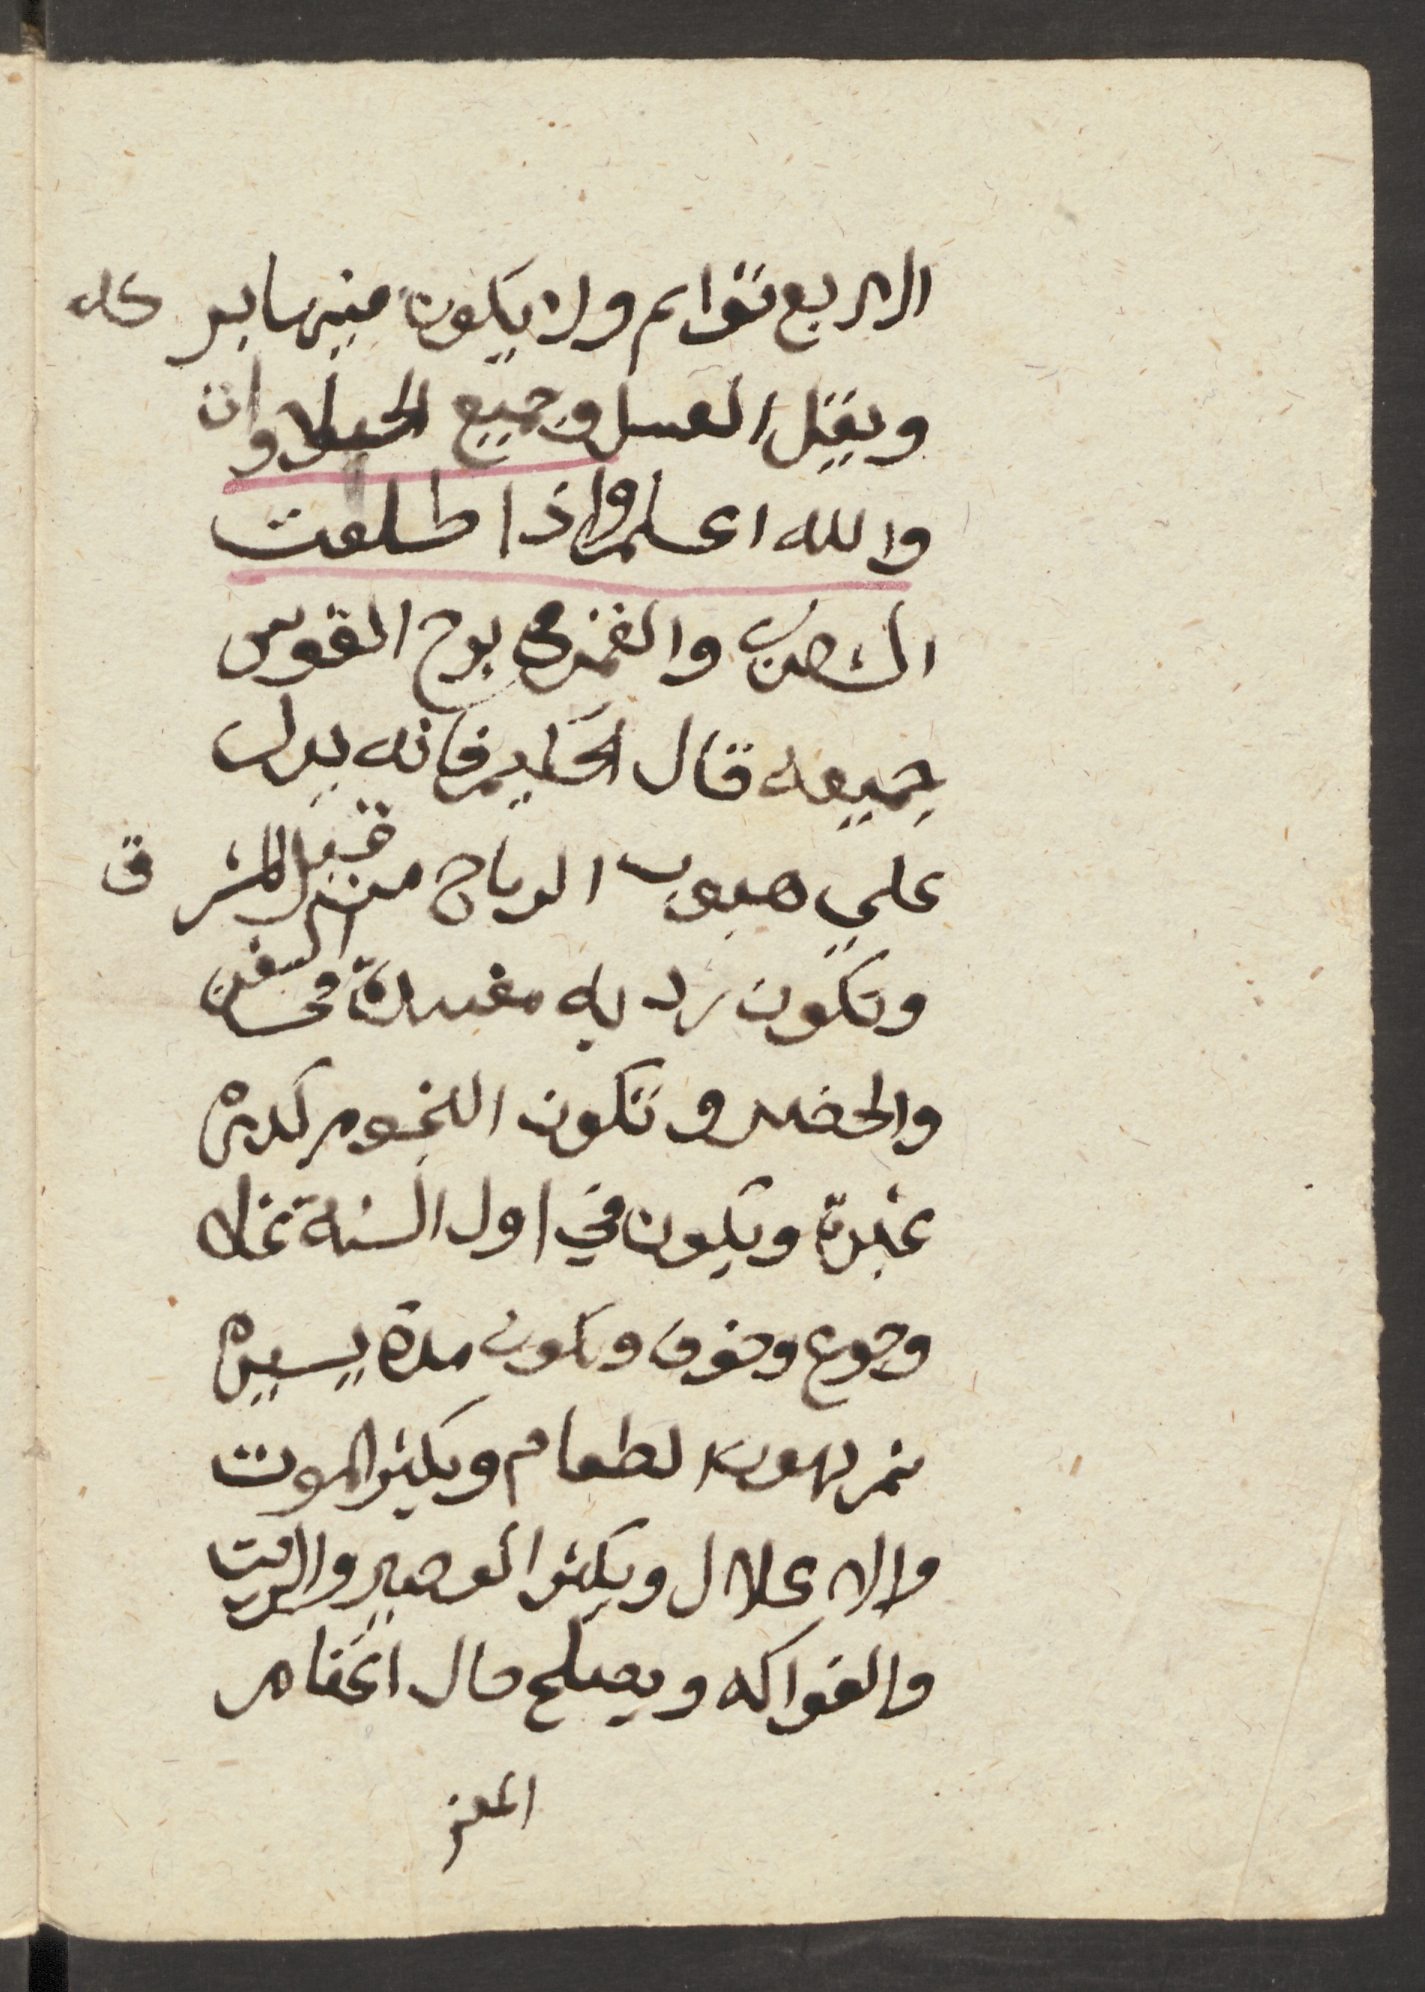 الاربع توايم ولا يكون فيها بر كله
ويقتل العسل وجميع الحبلا وان
والله اعلم واذا طلعت
الشعرى والقمر في برج القوس
جميعه قال الحكيم فانه يدل
علي هبوب الرياح من قبل المشر ق
وتكون رديه مفسدة في السفن
والحضر وتكون النجوم كدره
غبرة ويكون في اول السنة غلا
وجوع وخوف وتكون مدة يسيره
ثم يهون لطعام ويكثر الموت
والاعلال ويكثر العصير والزيت
والفواكه ويصلح حال اغنام
المعز